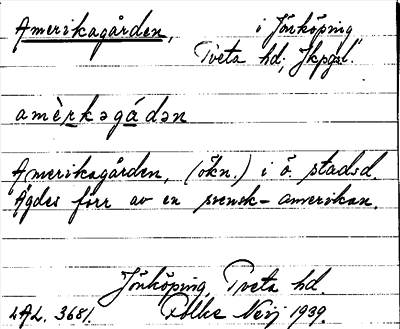 Amerikagården, i Jönköping
Tveta hd; Jkpgsl.
amèrkəgádən
Amerikagården, (ökn.) i ö. stadsd.
Ägdes förr av en svensk-amerikan.
Jönköping, Tveta hd.
LAL. 3681. Folke Neij 1939.